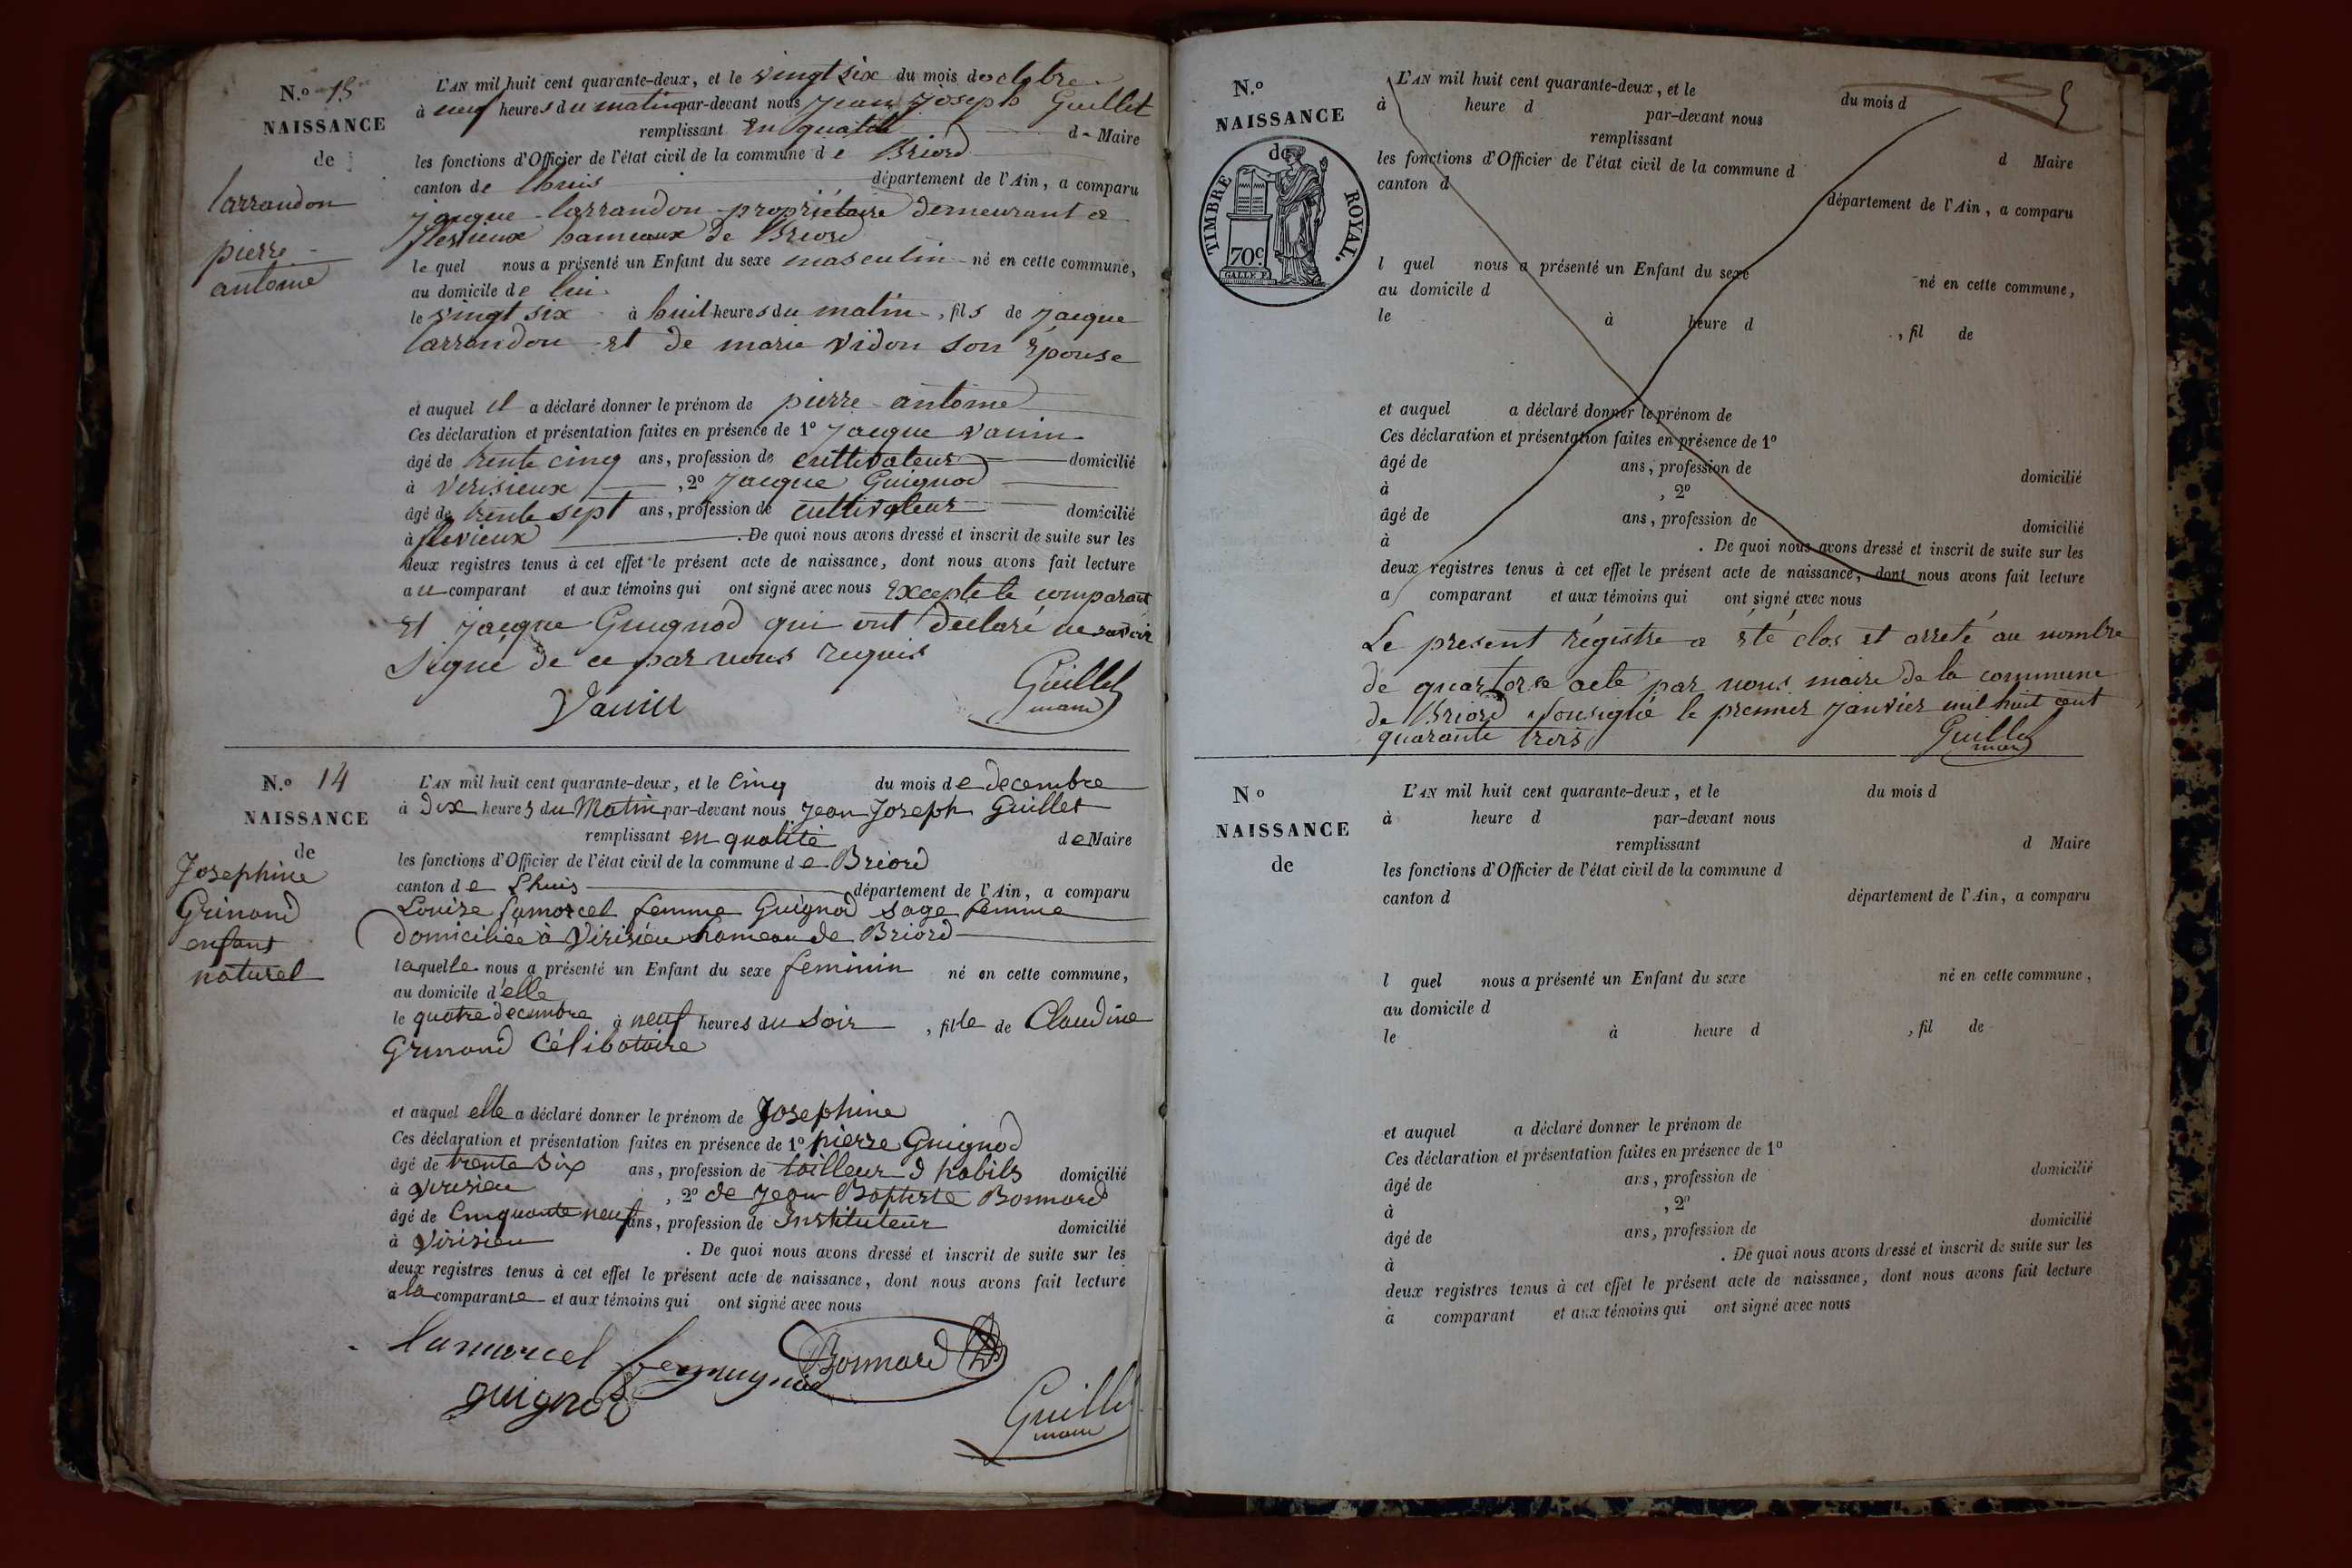 N.º 15
NAISSANCE
de
larrandon
pierre
antoine
L'AN mil huit cent quarante-deux, et le vingt six du mois doctobre
à neuf heures du matin par-devant nous Jean Joseph Guillet
remplissant en qualité d Maire
les fonctions d'Officier de l'état civil de la commune de Briord
canton de lhuis département de l'Ain, a comparu
jacque larrandon propriétaire demeurant a
flevieux hameaux de Briord
le quel nous a présenté un Enfant du sexe masculin né en cette commune,
au domicile de lui
le vingt six à huit heures du matin, fils de jacque
larrandon et de marie vidon son épouse
et auquel il a déclaré donner le prénom de pierre antoine
Ces déclaration et présentation faites en présence de 1º jacque vanin
âgé de trente cinq ans, profession de cultivateur domicilié
à verisieux, 2º jacque Guignod
âgé de trente sept ans, profession de cultivateur domicilié
à flevieux. De quoi nous avons dressé et inscrit de suite sur les
deux registres tenus à cet effet le présent acte de naissance, dont nous avons fait lecture
au comparant et aux témoins qui ont signé avec nous excepté le comparant
et jacque Guignod qui ont declaré ne savoir
signé de ce par nous requis
Guillet
maire
N.º 14
NAISSANCE
de
Josephine
Grinand
enfant
naturel
L'AN mil huit cent quarante-deux, et le cinq du mois de decembre
à Dix heures du Matin par-devant nous Jean Joseph Guillet
remplissant en qualité de Maire
les fonctions d'Officier de l'état civil de la commune de Briord
canton de Lhuis département de l'Ain, a comparu
Louise lamorcel femme Guignod sage femme
domiciliée à Virisieu hameau de Briord
laquelle nous a présenté un Enfant du sexe feminin né en cette commune,
au domicile d'elle
le quatre decembre à neuf heures du soir, fille de Claudine
Grinand Célibataire
et auquel elle a déclaré donner le prénom de Josephine
Ces déclaration et présentation faites en présence de 1º pierre Guignod
âgé de trente six ans, profession de tailleur d habits domicilié
à Virisieu, 2º de Jean Baptiste Bonnard
âgé de Cinquante neuf ans, profession de Instituteur domicilié
à Virisieu. De quoi nous avons dressé et inscrit de suite sur les
deux registres tenus à cet effet le présent acte de naissance, dont nous avons fait lecture
a la comparante et aux témoins qui ont signé avec nous
lamorcel Bonnard
guignod
Guillet
maire
5
N.º
NAISSANCE
de
TIMBRE ROYAL.
70c.
L'AN mil huit cent quarante-deux, et le du mois d
à heure d par-devant nous
remplissant d Maire
les fonctions d'Officier de l'état civil de la commune d
canton d département de l'Ain, a comparu
l quel nous a présenté un Enfant du sexe né en cette commune,
au domicile d
le à heure d, fil de
et auquel a déclaré donner le prénom de
Ces déclaration et présentation faites en présence de 1º
âgé de ans, profession de domicilié
à, 2º
âgé de ans, profession de domicilié
à. De quoi nous avons dressé et inscrit de suite sur les
deux registres tenus à cet effet le présent acte de naissance, dont nous avons fait lecture
a comparant et aux témoins qui ont signé avec nous
Le present régistre a été clos et arreté au nombre
de quartorse acte par nous maire de la commune
de Briord sousigné le premier janvier mil huit cent
quarante trois
Guillet
maire
Nº
NAISSANCE
de
L'AN mil huit cent quarante-deux, et le du mois d
à heure d par-devant nous
remplissant d Maire
les fonctions d'Officier de l'état civil de la commune d
canton d département de l'Ain, a comparu
l quel nous a présenté un Enfant du sexe né en cette commune,
au domicile d
le à heure d, fil de
et auquel a déclaré donner le prénom de
Ces déclaration et présentation faites en présence de 1º
âgé de ans, profession de domicilié
à, 2º
âgé de ans, profession de domicilié
à. De quoi nous avons dressé et inscrit de suite sur les
deux registres tenus à cet effet le présent acte de naissance, dont nous avons fait lecture
à comparant et aux témoins qui ont signé avec nous